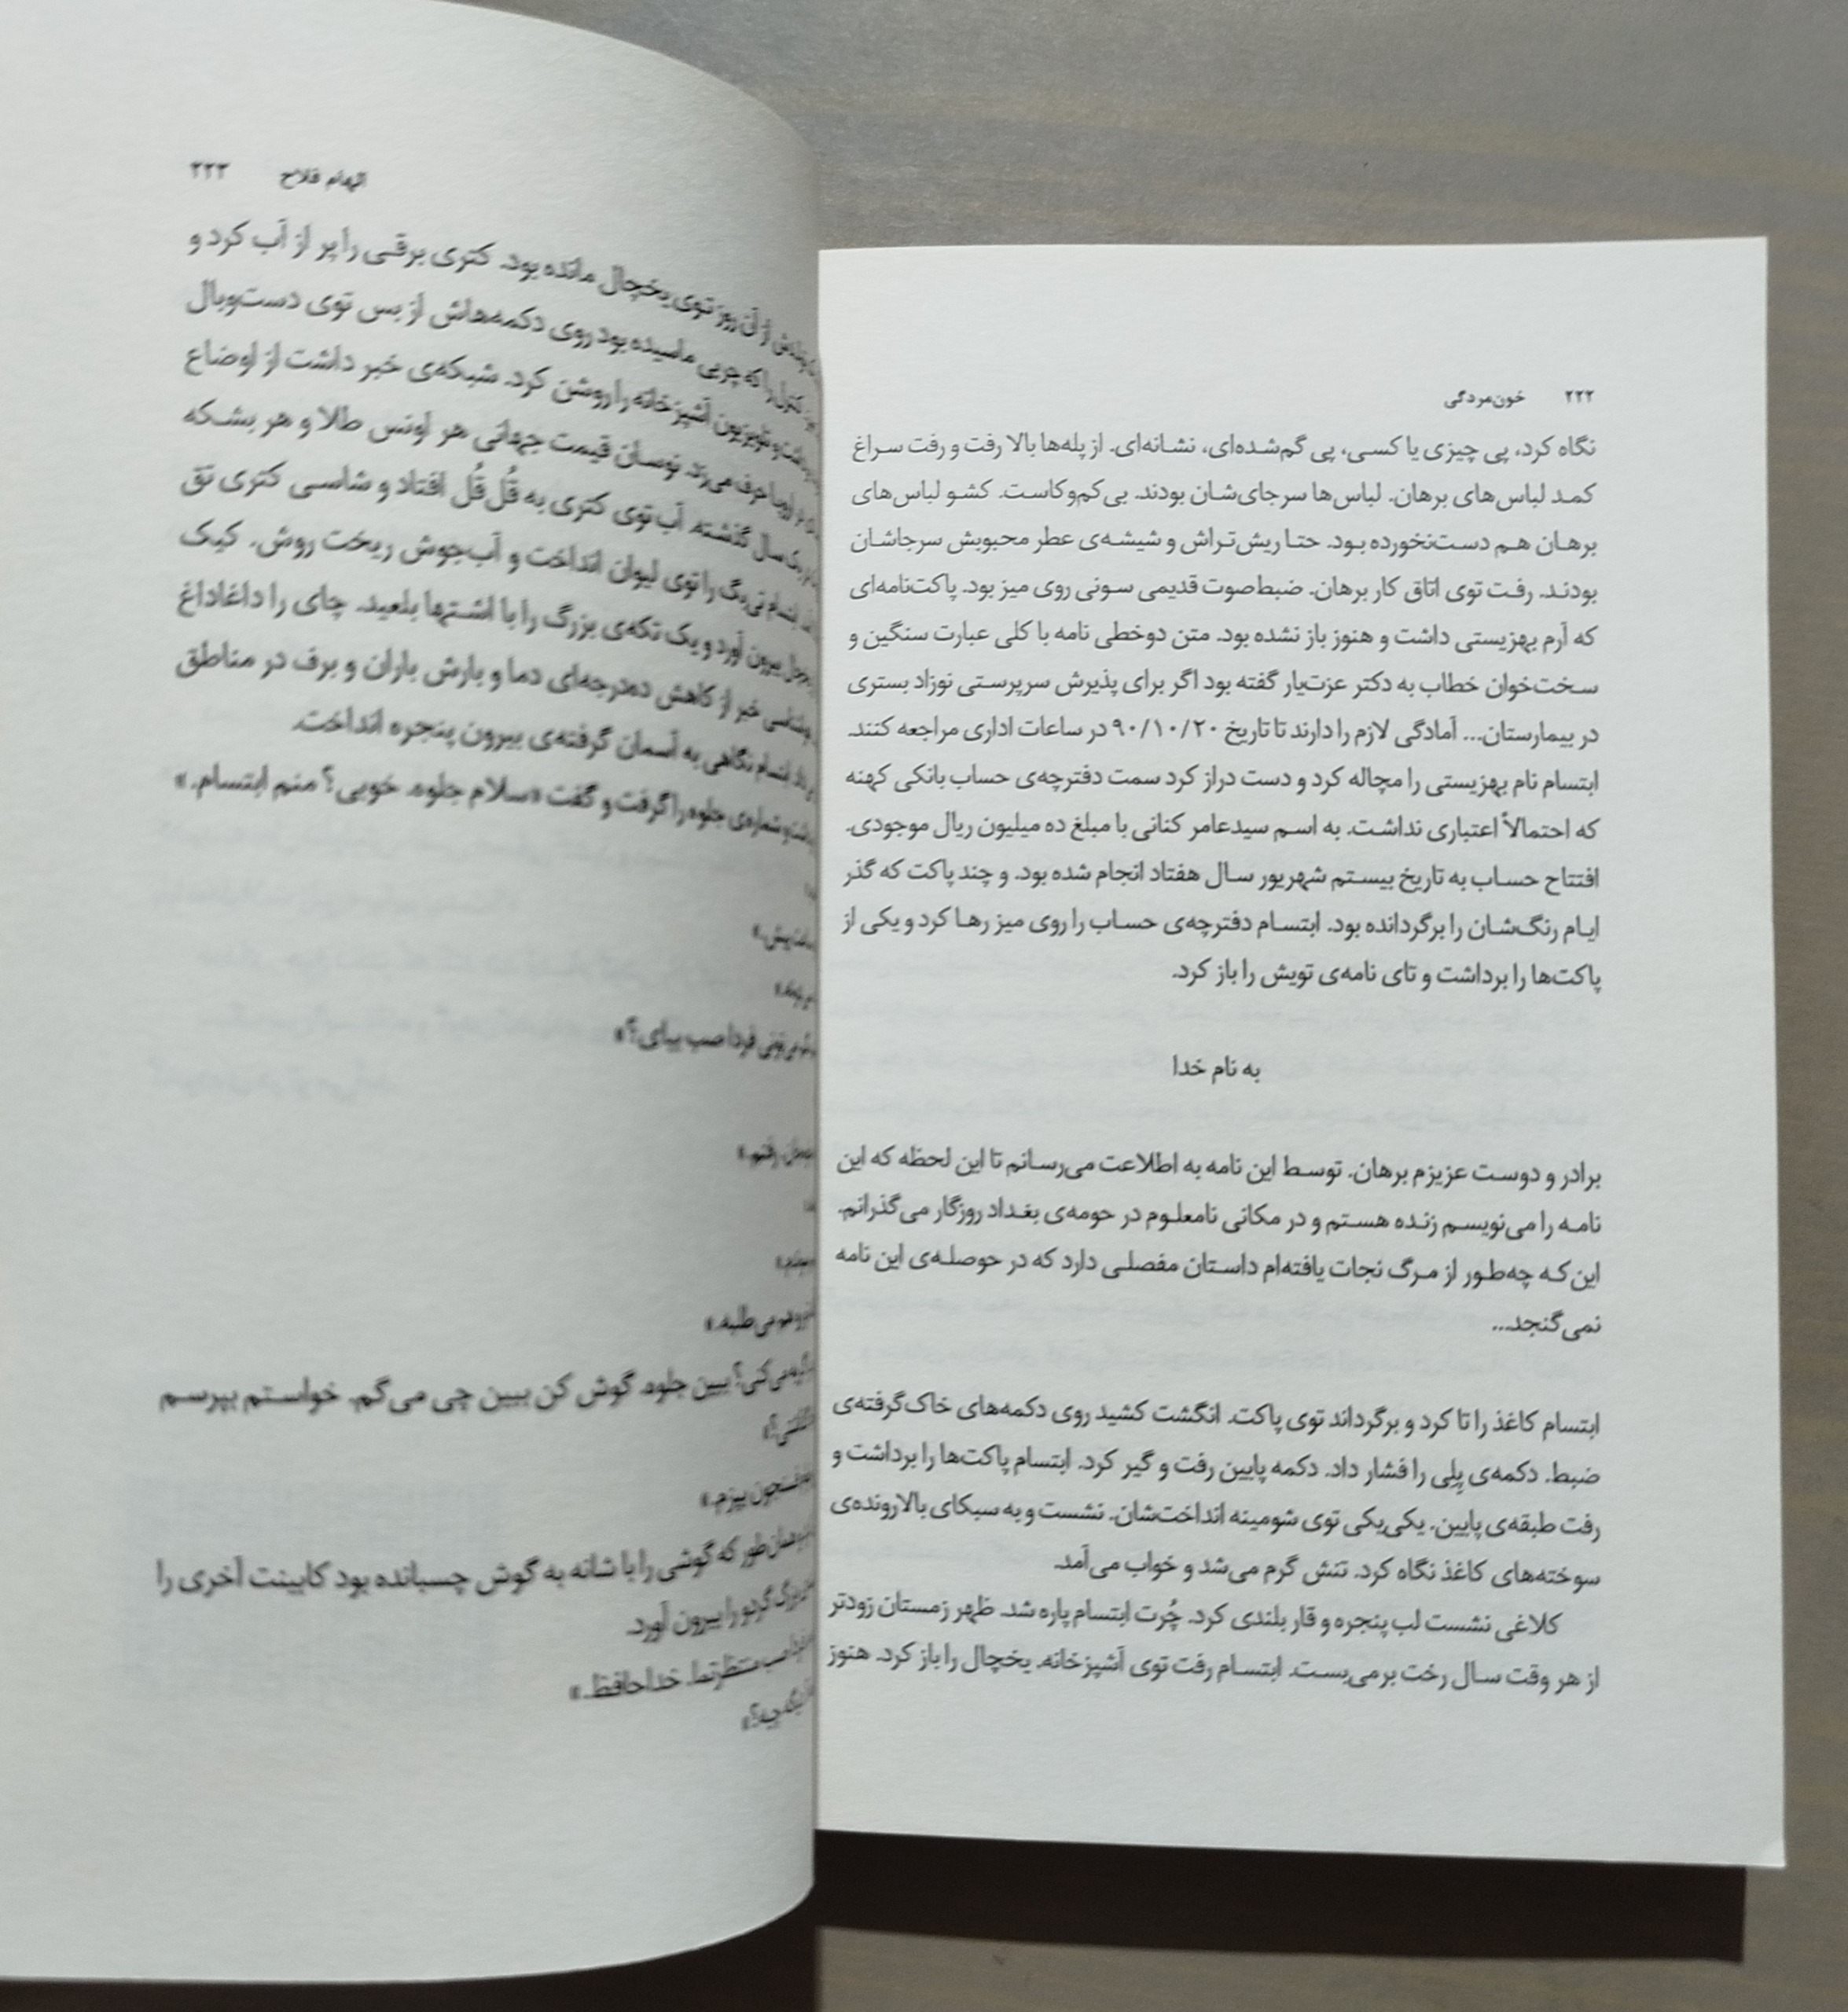 ۲۲۲ خون‌مردگی
نگاه کرد، پی چیزی یا کسی، پی گم‌شده‌ای، نشانه‌ای. از پله‌ها بالا رفت و رفت سراغ
کمد لباس‌های برهان. لباس‌ها سر جای‌شان بودند. بی‌کم‌وکاست. کشو لباس‌های
برهان هم دست‌نخورده بود. حتا ریش‌تراش و شیشه‌ی عطر محبوبش سرجاشان
بودند. رفت توی اتاق کار برهان. ضبط‌صوت قدیمی سونی روی میز بود. پاکت‌نامه‌ای
که آرم بهزیستی داشت و هنوز باز نشده بود. متن دوخطی نامه با کلی عبارت سنگین و
سخت‌خوان خطاب به دکتر عزت‌یار گفته بود اگر برای پذیرش سرپرستی نوزاد بستری
در بیمارستان... آمادگی لازم را دارند تا تاریخ ۹۰/۱۰/۲۰ در ساعات اداری مراجعه کنند.
ابتسام نام بهزیستی را مچاله کرد و دست دراز کرد سمت دفترچه‌ی حساب بانکی کهنه
که احتمالاً اعتباری نداشت. به اسم سیدعامر کنانی با مبلغ ده میلیون ریال موجودی.
افتتاح حساب به تاریخ بیستم شهریور سال هفتاد انجام شده بود. و چند پاکت که گذر
ایام رنگ‌شان را برگردانده بود. ابتسام دفترچه‌ی حساب را روی میز رها کرد و یکی از
پاکت‌ها را برداشت و تای نامه‌ی تویش را باز کرد.
به نام خدا
برادر و دوست عزیزم برهان. توسط این نامه به اطلاعت می‌رسانم تا این لحظه که این
نامه را می‌نویسم زنده هستم و در مکانی نامعلوم در حومه‌ی بغداد روزگار می‌گذرانم.
این‌که چه‌طور از مرگ نجات یافته‌ام داستان مفصلی دارد که در حوصله‌ی این نامه
نمی‌گنجد...
ابتسام کاغذ را تا کرد و برگرداند توی پاکت. انگشت کشید روی دکمه‌های خاک‌گرفته‌ی
ضبط. دکمه‌ی پِلِی را فشار داد. دکمه پایین رفت و گیر کرد. ابتسام پاکت‌ها را برداشت و
رفت طبقه‌ی پایین. یکی‌یکی توی شومینه انداخت‌شان. نشست و به سبکای بالارونده‌ی
سوخته‌های کاغذ نگاه کرد. تنش گرم می‌شد و خواب می‌آمد.
کلاغی نشست لب پنجره و قار بلندی کرد. چُرت ابتسام پاره شد. ظهر زمستان زودتر
از هر وقت سال رخت برمی‌بست. ابتسام رفت توی آشپزخانه. یخچال را باز کرد. هنوز
الهام فلاح ۲۲۳
از آن روز توی یخچال مانده بود. کتری برقی را پر از آب کرد و
کنترل را که چربی ماسیده بود روی دکمه‌هاش از بس توی دست‌وبال
تلویزیون آشپزخانه را روشن کرد. شبکه‌ی خبر داشت از اوضاع
اروپا حرف می‌زد. نوسان قیمت جهانی هر اونس طلا و هر بشکه
یک سال گذشته. آب توی کتری به قُل‌قُل افتاد و شاسی کتری تق
ابتسام تی‌بگ را توی لیوان انداخت و آب‌جوش ریخت روش. کیک
بیرون آورد و یک تکه‌ی بزرگ را با اشتها بلعید. چای را داغاداغ
خبر از کاهش ده‌درجه‌ای دما و بارش باران و برف در مناطق
ابتسام نگاهی به آسمان گرفته‌ی بیرون پنجره انداخت.
شماره‌ی جلوه را گرفت و گفت «سلام جلوه. خوبی؟ منم ابتسام.»
پیش.»
فردا صب بیای؟»
رفتم.»
می‌طلبه.»
می‌کنی؟ ببین جلوه. گوش کن ببین چی می‌گم. خواستم بپرسم
فسنجون بپزم.»
همان‌طور که گوشی را با شانه به گوش چسبانده بود کابینت آخری را
بزرگ گردو را بیرون آورد.
صب منتظرتما. خداحافظ.»
چیه؟»